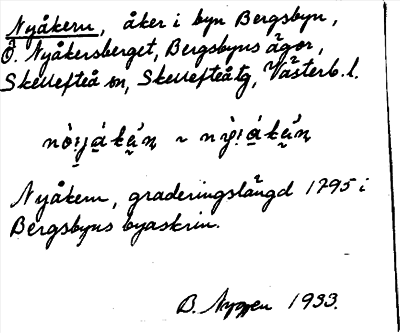 Nyåkern, åker i byn Bergsbyn,
Ö. Nyåkersberget, Bergsbyns ägor,
Skellefteå sn, Skellefteå tg, Västerb. l.
Nyåkern, graderingslängd 1795 i
Bergsbyns byaskrin.
B. 1933.